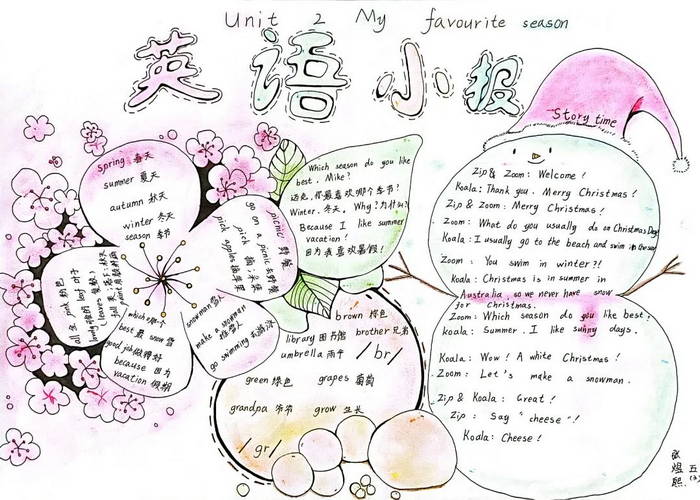 Unit 2 My favourite season
英语小报
Story time
spring 春天
summer 夏天
autumn 秋天
winter 冬天
season 季节
picnic 野餐
go on a picnic 去野餐
pick 摘;采集
pick apples 摘苹果
snowman 雪人
make a snowman
堆雪人
go swimming 去游泳
which 哪一个
best 最 snow 雪
good job 做得好
because 因为
vacation 假期
all 全 pink 粉色
lovely 可爱的 leaf 叶子
(leaves 复数)
fall 秋天
paint
Which season do you like
best, Mike?
迈克,你最喜欢哪个季节?
Winter. 冬天。 Why? 为什么?
Because I like summer
vacation!
因为我喜欢暑假!
brown 棕色
library 图书馆 brother 兄弟
umbrella 雨伞 /br/
green 绿色 grapes 葡萄
grandpa 爷爷 grow 生长
/gr/
Zip & Zoom: Welcome!
Koala: Thank you. Merry Christmas!
Zip & Zoom: Merry Christmas!
Zoom: What do you usually do on Christmas Day?
Koala: I usually go to the beach and swim in the sea
Zoom: You swim in winter?!
Koala: Christmas is in summer in
Australia, so we never have snow
for Christmas.
Zoom: Which season do you like best?
Koala: Summer. I like sunny days.
Koala: Wow! A white Christmas!
Zoom: Let's make a snowman.
Zip & Koala: Great!
Zip: Say "cheese"!
Koala: Cheese!